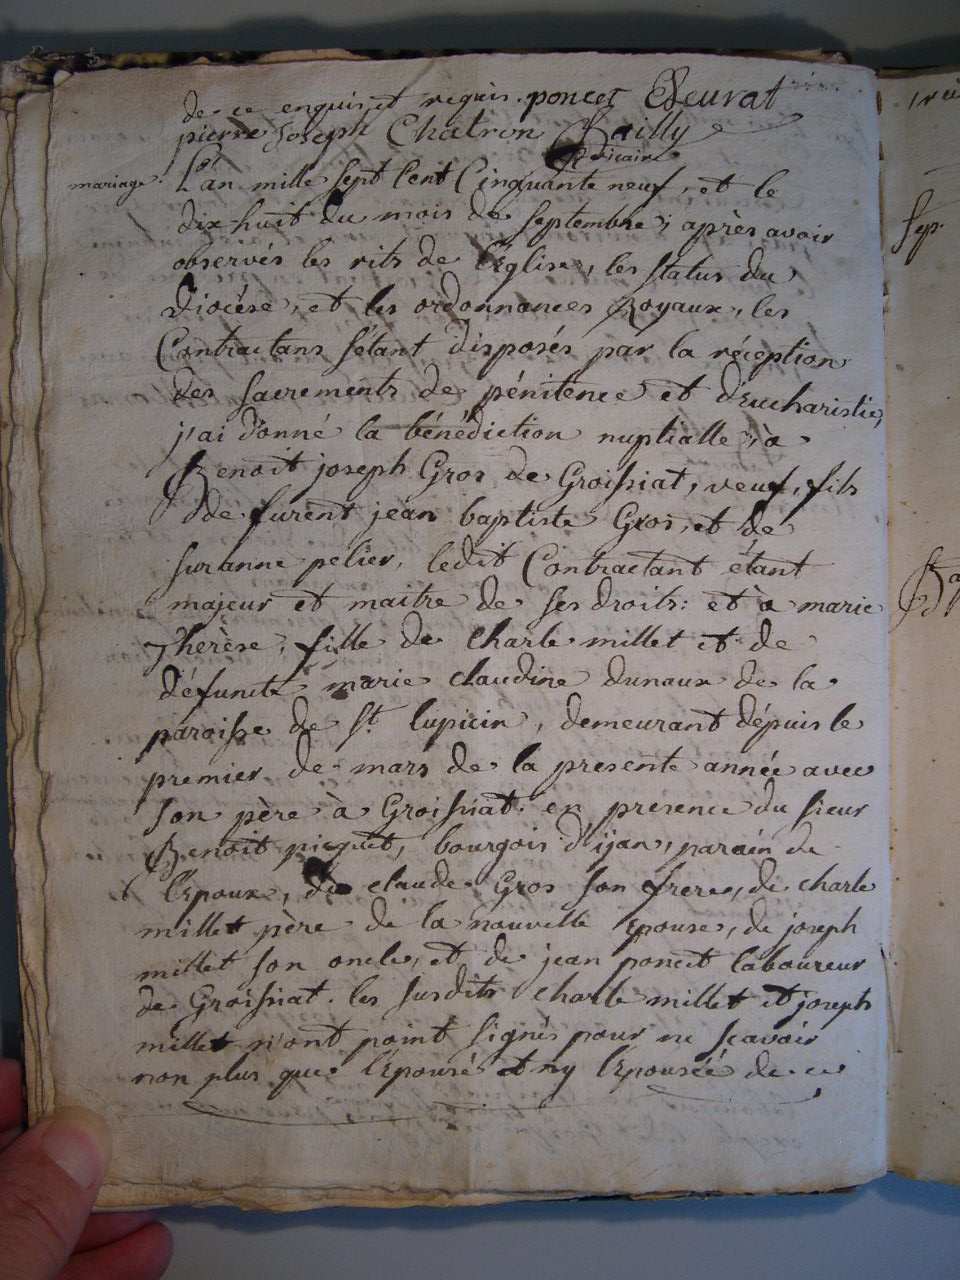 de ce enquis et requis. poncet Deurat
pierre Joseph Chatron Bailly
vicaire
mariage. L'an mille sept Cent Cinquante neuf, et le
dix-huit du mois de septembre, après avoir
observés les rits de l'Eglise, les status du
Diocèse, et les ordonnances Royaux, les
Contractans s'étant disposés par la réception
des sacrements de pénitence et d'Eucharistie,
j'ai donné la bénédiction nuptialle à
Benoit joseph Gros de Groissiat, veuf, fils
de furent jean baptiste Gros, et de
suzanne pelier, ledit Contractant étant
majeur et maitre de ses droits: et à marie
Therèse, fille de Charle millet et de
défuncte marie claudine dunaux de la
paroisse de St. lupicin, demeurant dépuis le
premier de mars de la presente année avec
son père à Groissiat. en présence du sieur
Benoit picquet, bourgois d'ijan, parain de
l'Epoux, de claude Gros son frere, de charle
millet père de la nouvelle Epouse, de joseph
millet son oncle, et de jean poncet laboureur
de Groissiat. les susdits charle millet et joseph
millet n'ont point signés pour ne scavoir
non plus que l'épousé et ny l'Epousée de ce
1
sep
Ba